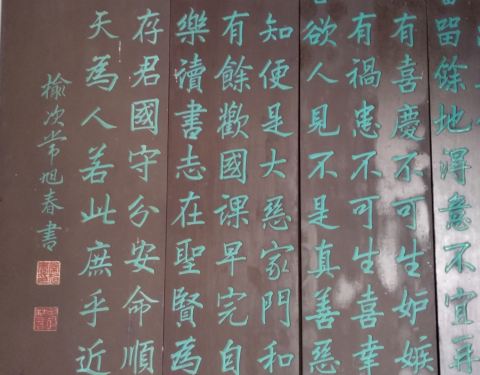 留餘地得意不宜再
有喜慶不可生妒嫉
有禍患不可生喜幸
欲人見不是真善惡
知便是大惡家門和
有餘歡國課早完自
樂讀書志在聖賢為
存君國守分安命順
天為人若此庶乎近
榆次常旭春書